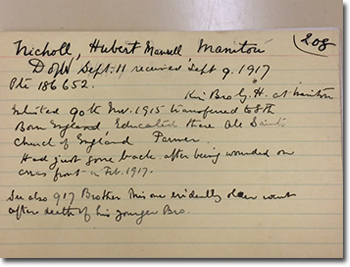 Nicholl, Hubert Mansell Manitou 208
DofW Sept. 11 received Sept 9. 1917
Pte 186652.
Kin Bro G. H. at Manitou
Enlisted 90th Nov. 1915 transferred to 8th
Born England, Educated there Ale Saints
Church of England Farmer
Had just gone back after being wounded on
front in Feb. 1917.
See also 917 Brother this one evidently older went
after death of his younger Bro.